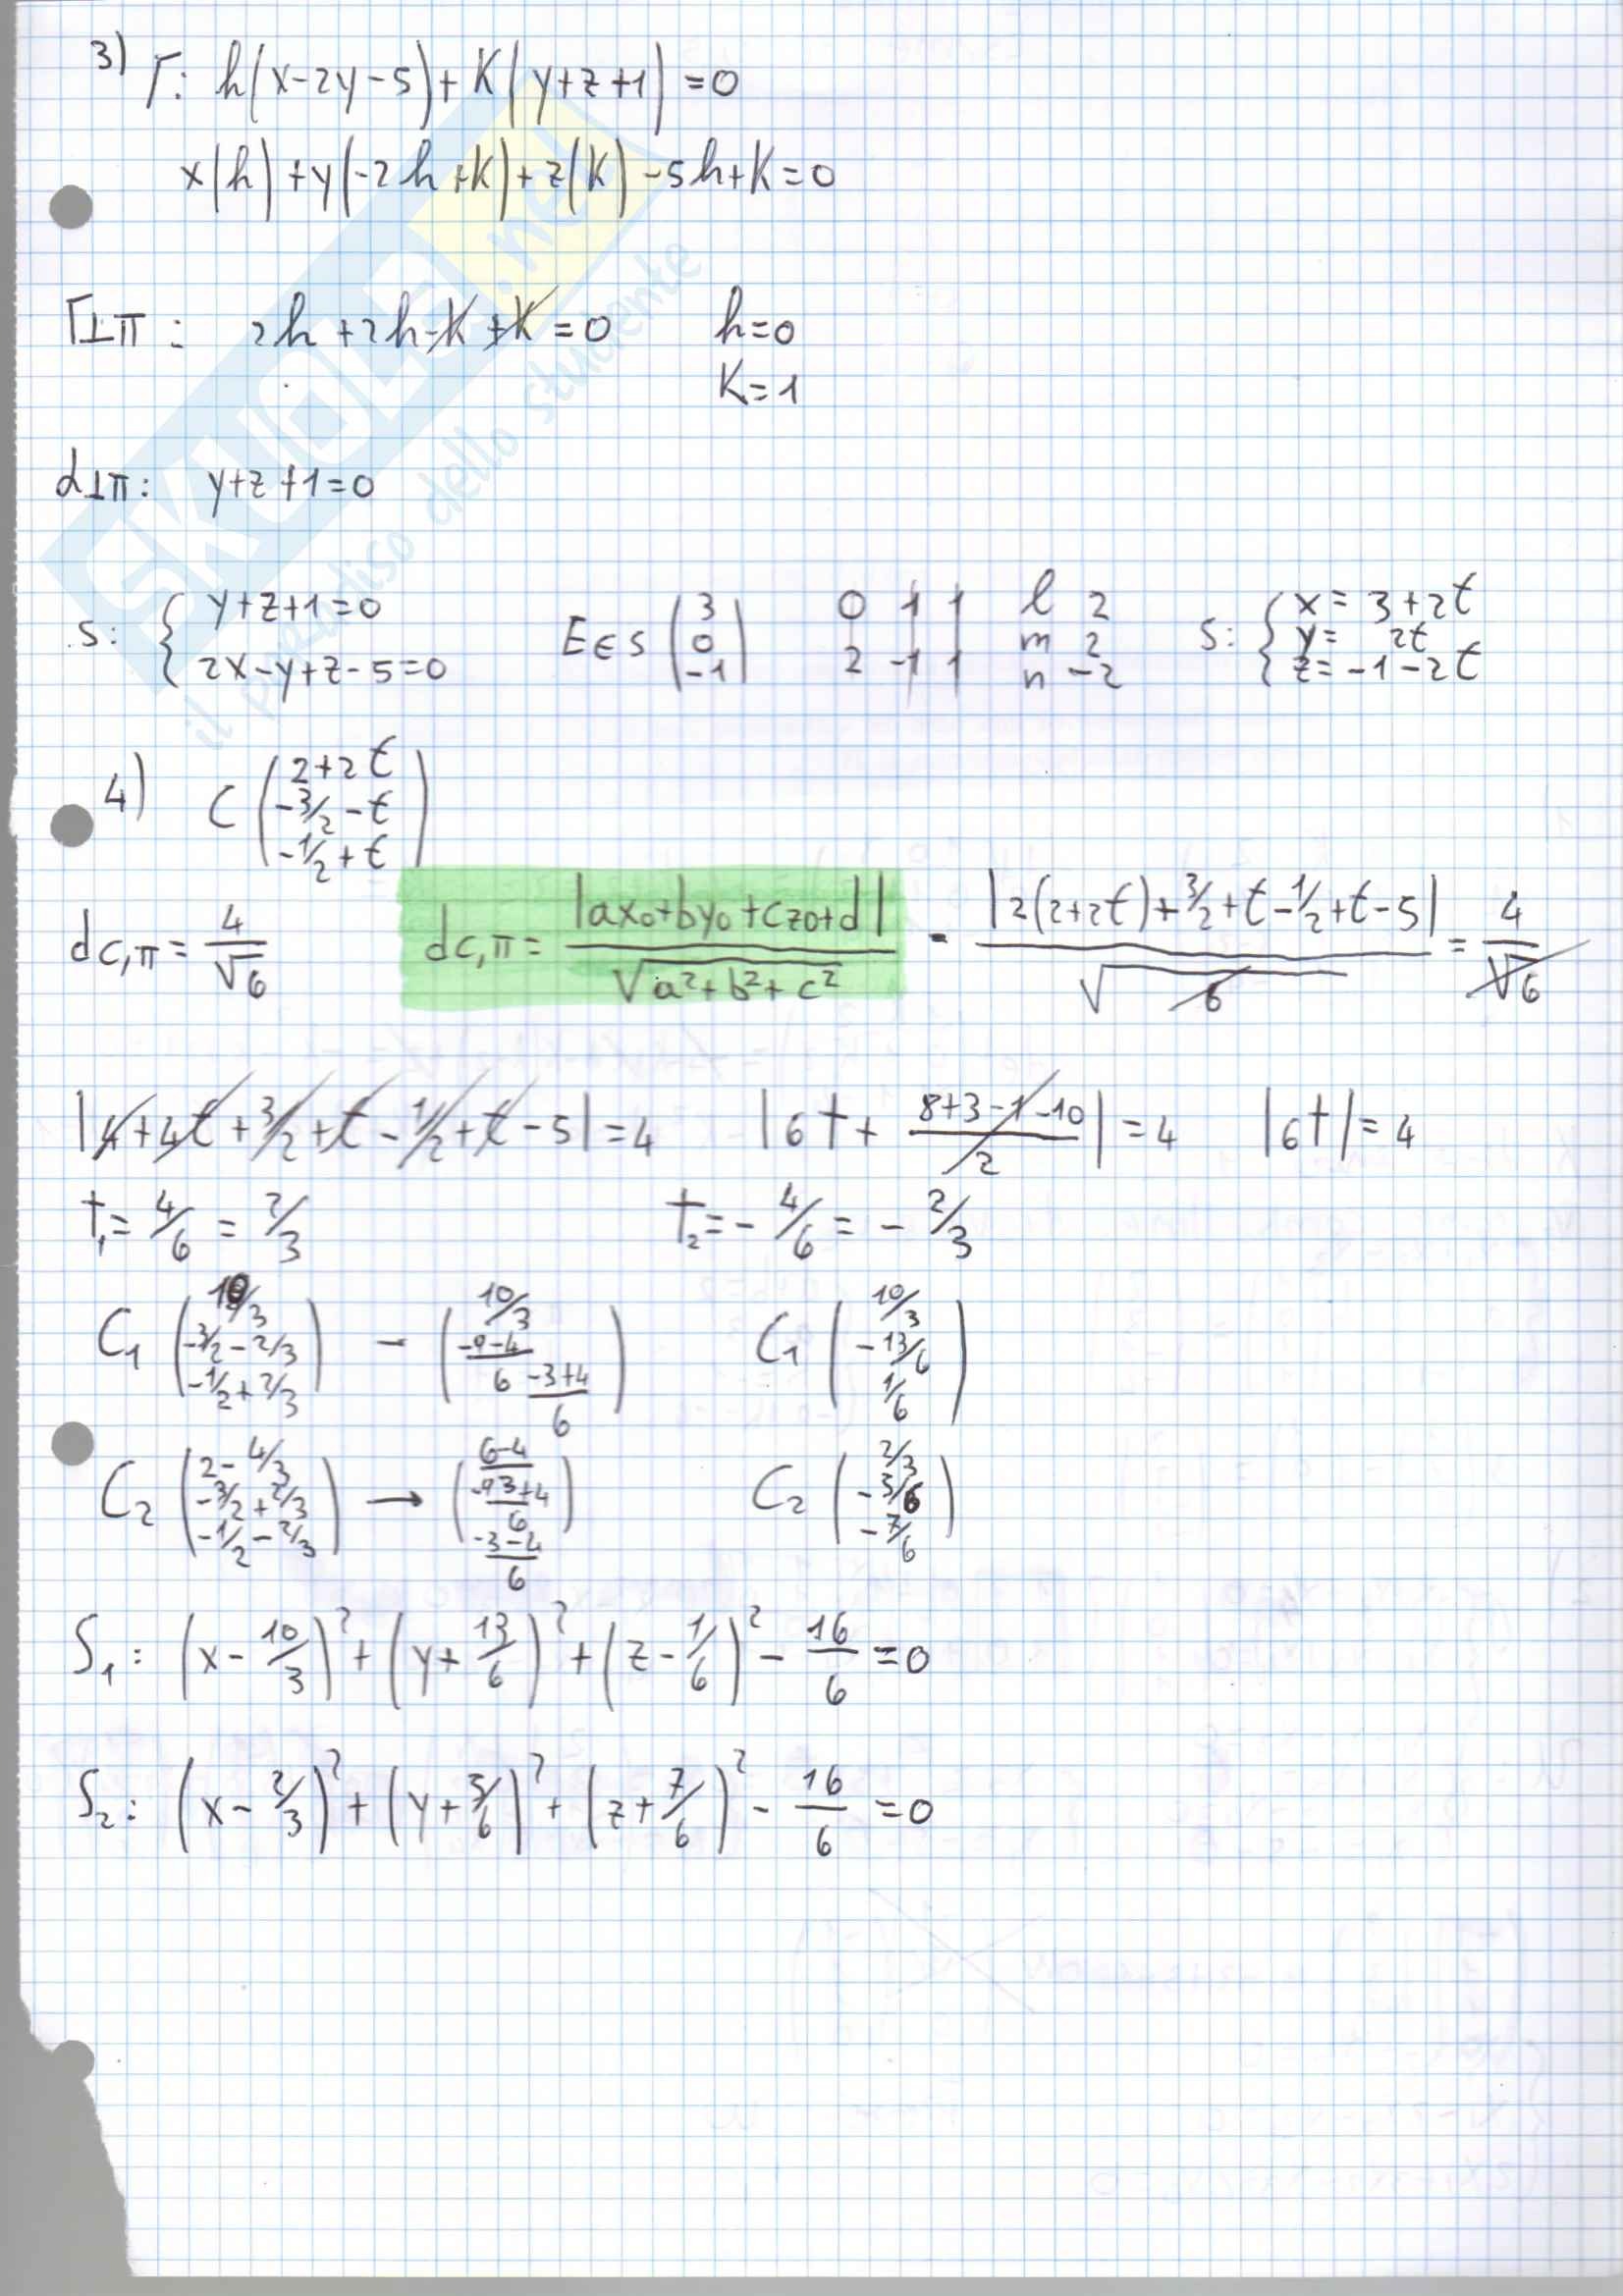 3) Γ: h(x-2y-5)+K(y+z+1)=0
x(h)+y(-2h+K)+z(K)-5h+K=0
Γ⊥π: 2h+2h-K+K=0 h=0
K=1
α⊥π: y+z+1=0
s: { y+z+1=0
2x-y+z-5=0
E∈s (3
0
-1)
0 1 1
2 -1 1
l 2
m 2
n -2
s: { x= 3+2t
y= 2t
z=-1-2t
4) C (2+2t
-3/2-t
-1/2+t)
dc,π = 4/√6 dc,π = |ax0+by0+cz0+d| / √a²+b²+c² - |2(2+2t)+3/2+t-1/2+t-5| / √6 = 4/√6
|4+4t+3/2+t-1/2+t-5|=4 |6t+ (8+3-1-10)/2|=4 |6t|=4
t1= 4/6 = 2/3 t2=- 4/6 = - 2/3
C1 (10/3
-3/2-2/3
-1/2+2/3)
- (10/3
-9-4/6
-3+4/6)
C1 (10/3
-13/6
1/6)
C2 (2-4/3
-3/2+2/3
-1/2-2/3)
→ (6-4
-93+4/6
-3-4/6)
C2 (2/3
-3/6
-7/6)
S1: (x-10/3)²+(y+13/6)²+(z-1/6)²-16/6=0
S2: (x-2/3)²+(y+3/6)²+(z+7/6)²-16/6=0
SKUOLA.net
il paradiso dello studente